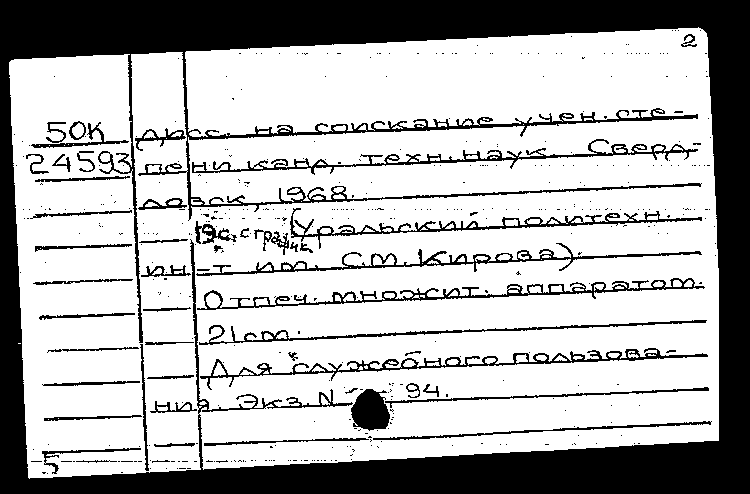 2
50К дисс. на соискание учен. сте-
24593 пени канд. техн. наук. Сверд-
ловск, 1968.
19с. с граф. (Уральский политехн.
ин-т им. С.М. Кирова).
Отпеч. множит. аппаратом.
21см.
Для служебного пользова-
ния. Экз. N 94.
5